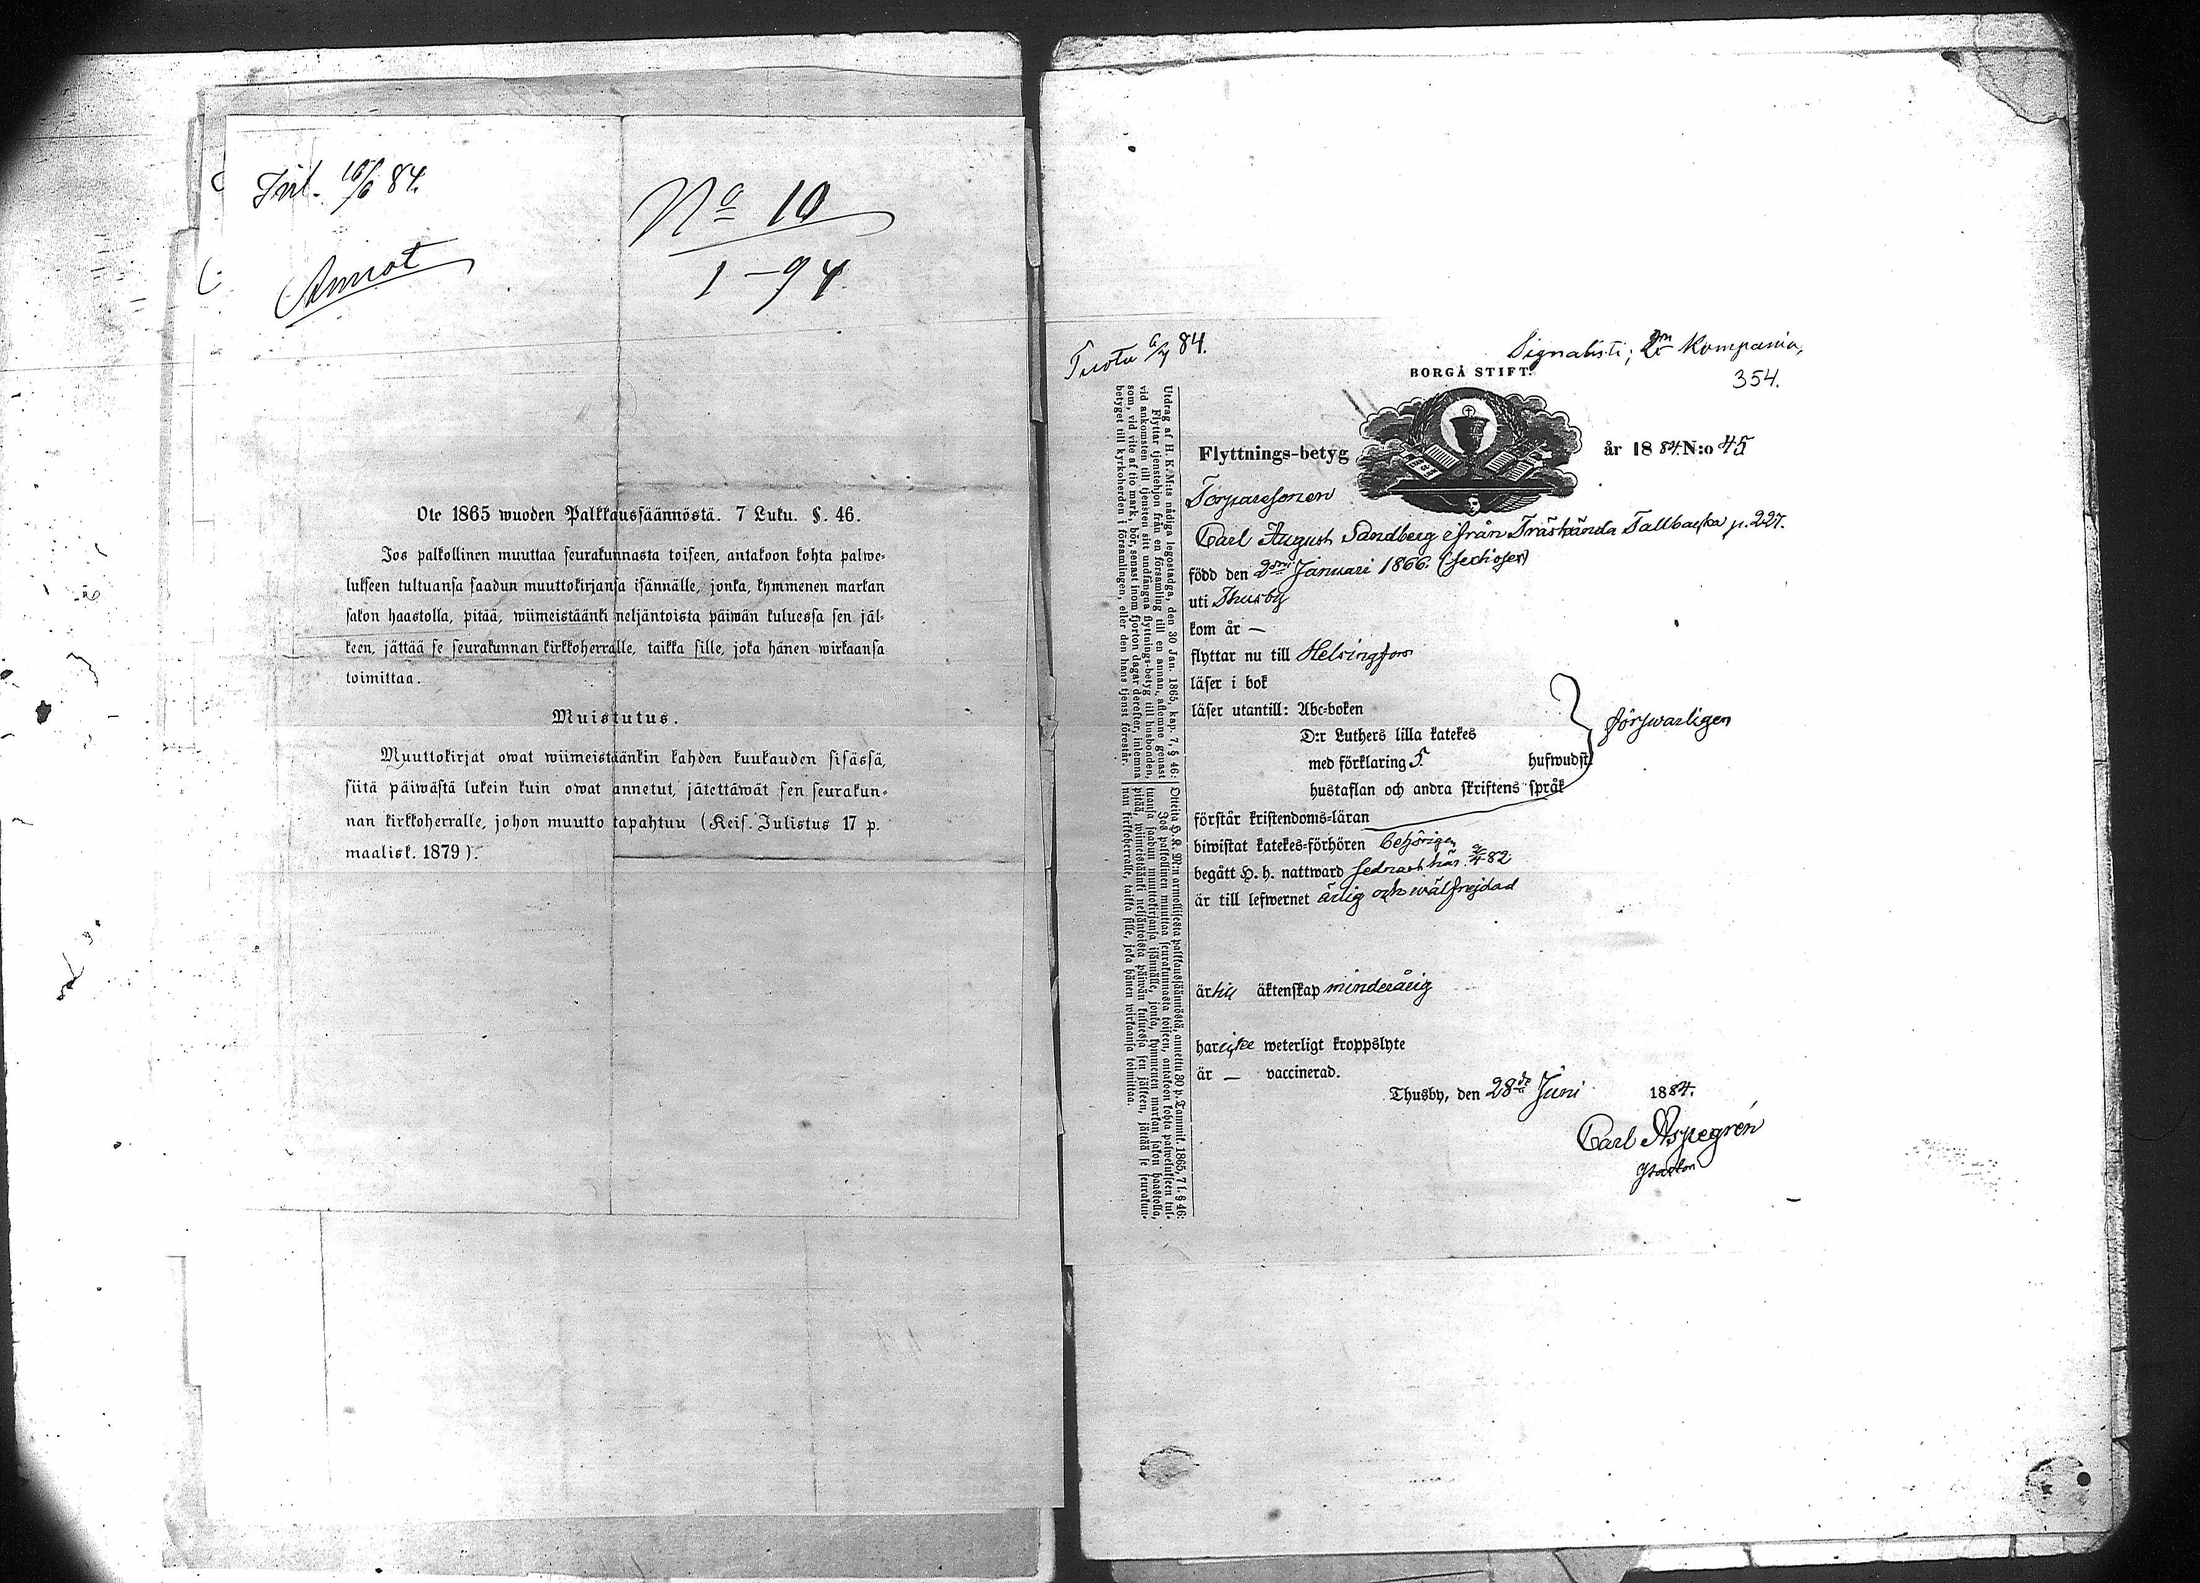 Inl. 16/6 84.
Annot
No 10
1-94
Ote 1865 wuoden Palkkaussäännöstä. 7 Luku. §. 46.
Jos palkollinen muuttaa seurakunnasta toiseen, antakoon kohta palwe-
lukseen tultuansa saadun muuttokirjansa isännälle, jonka, kymmenen markan
sakon haastolla, pitää, wiimeistäänki neljäntoista päiwän kuluessa sen jäl-
keen, jättää se seurakunnan kirkkoherralle, taikka sille, joka hänen wirkaansa
toimittaa.
Muistutus.
Muuttokirjat owat wiimeistäänkin kahden kuukauden sisässä,
siitä päiwästä lukein kuin owat annetut, jätettäwät sen seurakun-
nan kirkkoherralle, johon muutto tapahtuu (Keis. Julistus 17 p.
maalisk. 1879).
Tuotu 6/7 84.
Signalisti; 2n Kompania,
354.
BORGÅ STIFT.
Flyttnings-betyg
år 1884. N:o 45
Torparesonen
Carl August Sandberg ifrån Träskända Tallbacka p. 227.
född den 2dre Januari 1866. (sextiosex)
uti Thusby
kom år —
flyttar nu till Helsingfors
läser i bok
läser utantill: Abc-boken
D:r Luthers lilla katekes
med förklaring 5. hufwudst.
hustaflan och andra skriftens språk
förswarligen
förstår kristendoms-läran
biwistat katekes-förhören behörigen
begått H. h. nattward sednast här 9/4 82
är till lefwernet ärlig och wälfrejdad
är till äktenskap minderårig
har icke weterligt kroppslyte
är — vaccinerad.
Thusby, den 28de Juni 1884.
Carl Aspegrén
Utdrag af H. K. M:ts nådiga legostadga, den 30 Jan. 1865, kap. 7, § 46:
Flyttar tjenstehjon från en församling till en annan, aflemne genast
vid ankomsten till tjensten sitt undfångna flyttnings-betyg till husbonden,
som, vid vite af tio mark, bör, senast inom fjorton dagar derefter, inlemna
betyget till kyrkoherden i församlingen, eller den hans tjenst förestår.
Otteita H. K. M:n armollisesta palkkaussäännöstä, annettu 30 p. Tammik. 1865, 7 l. § 46:
Jos palkollinen muuttaa seurakunnasta toiseen, antakoon kohta palwelukseen tul-
tuansa saadun muuttokirjansa isännälle, jonka, kymmenen markan sakon haastolla,
pitää, wiimeistäänki neljäntoista päiwän kuluessa sen jälkeen, jättää se seurakun-
nan kirkkoherralle, taikka sille, joka hänen wirkaansa toimittaa.